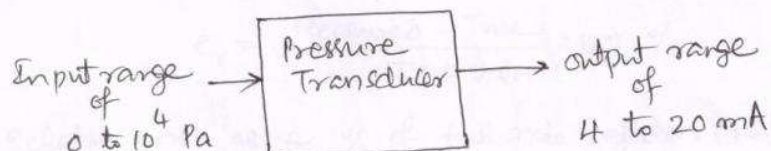 Input range
of
0 to 10⁴ Pa
Pressure
Transducer
output range
of
4 to 20 mA